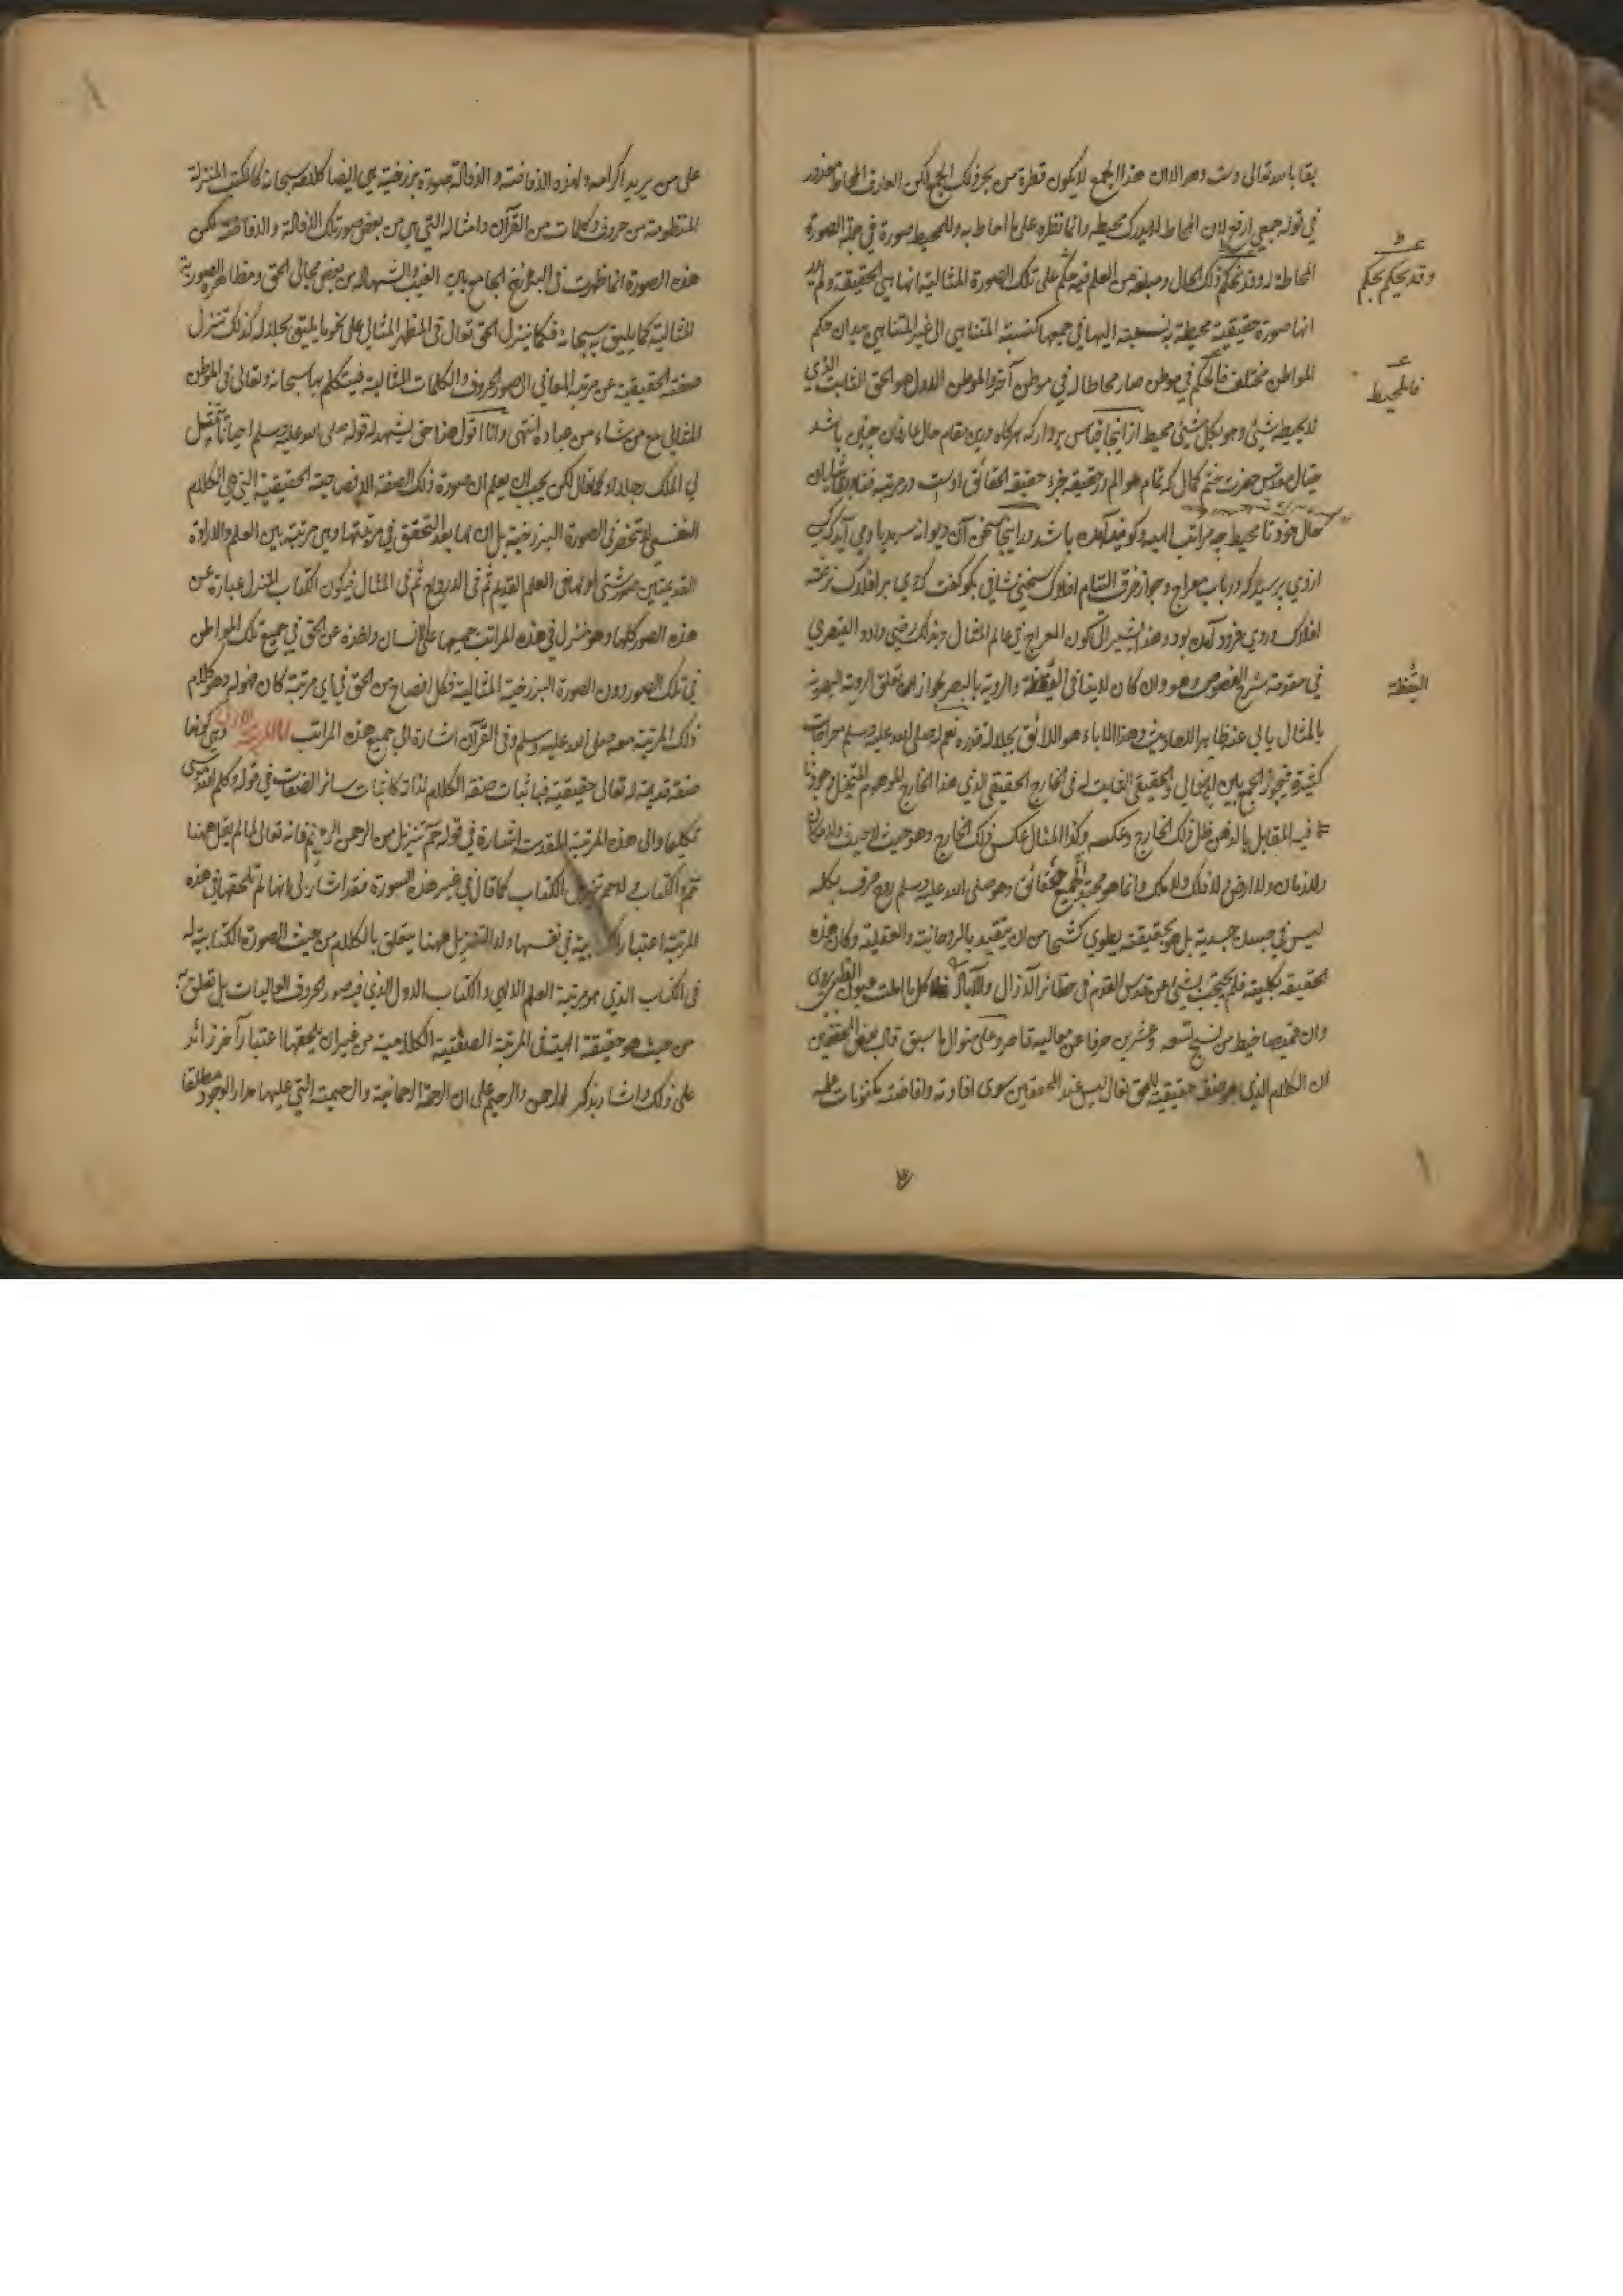 بقا بالله تعالى وست وهو الان هذا الجمع لا يكون قطرة من بحر ذلك الجمع لكن العارف المحاط معذور
في قوله جمعي ارفع لان المحاط لا يدرك محيطه وانما نظره على ما احاط به وللمحيط صورة في جملة الصورة
المحاطة له وقد ذلك الحال ومبلغه من العلم فيه حكم على تلك الصورة المثالية انها هي الحقيقة ولم
انها صورة حقيقية محيطة نسبته اليها في جميعها كنسبة المتناهي الى غير المتناهي بيد ان حكم
المواطن مختلف في موطن صار محاطا له في موطن آخر والموطن الاول هو الحق الثابت الذي
لا يحيطه شيئ وهو بكل شيئ محيط از اينجا قياس بردار كه هرگاه درين مقام حال عارفان چنين باشد
خيال مقدس حضرت ختم كمال كه تمام عوالم در حقيقة جزء حقيقة الحقائق اوست در مرتبه
حال خود تا محيط چه مراتب الهيه وكونيه آمده باشد واينجا سخن آن ديوانه سر بيادمى آيد كه كسى
از وي پرسيد كه در باب معراج وجواز خرق والتيام افلاك سخنى شافي بگو گفت كه وي بر افلاك نرفته
افلاك در وي فرود آمده بود وهذا يشير الى كون المعراج في عالم المثال وبذلك رضي داود القيصري
في مقدمة شرح الفصوص وهو وان كان لا ينافي اليقظة والروية بالبصر لجواز تعلق الروية البصرية
بالمثال يابى عنه ظاهر الاحاديث وهذا الاباء هو اللائق بجلالة قدره نعم له صلى الله عليه وسلم معراجات
كثيرة فيجوز الجمع بين المثالي والحقيقي الثابت له في الخارج الحقيقي الذي هذا الخارج الموهوم المتخيل
فيه المقابل بالذهن ظل ذلك الخارج وعكسه وكذا المثال عكس ذلك الخارج وهو حيث لا حيث ولا مكان
ولا زمان ولا ارض ولا فلك ولا ملك وانما هو الحقائق وهو صلى الله عليه وسلم روح صرف بكله
ليس في جسده جسدية بل هو بحقيقته يطوي كشحا من ان يتقيد بالروحانية والعقلية وكان هذه
الحقيقة بكليته فلم يحتجب بشيئ عن قدس القدم في حظائر الآزال والآباد
وان قميصا خيط من نسج تسعة وعشرين حرفا عن معاليه قاصر وعلى منوال ما سبق قال بعض المحققين
ان الكلام الذي هو صفة حقيقية للحق تعالى ليس عند المحققين سوى افادته وافاضته مكنونات علمه
وقد يحكم بحكم
فالمحيط
اليقظة
على من يريد اكرامه ولهذه الافاضة والافادة صورة برزخية هي ايضا كلامه سبحانه كالكتب المنزلة
المنظومة من حروف وكلمات من القرآن وامثاله التي هي من بعض صور تلك الافادة والافاضة لكن
هذه الصورة انما ظهرت في البرزخ الجامع بين الغيب والشهادة من بعض مجالي الحق ومظاهره الصورية
المثالية كما يليق به سبحانه فكما ينزل الحق تعالى في المظهر المثالي على نحو ما يليق بجلاله كذلك تنزل
صفته الحقيقية عن مرتبة المعاني الى صور الحروف والكلمات المثالية فيتكلم بها سبحانه وتعالى في الموطن
المثالي مع من شاء من عباده انتهى وانا اقول هذا حق يشهد له قوله صلى الله عليه وسلم احيانا يتمثل
لي الملك رجلا او كما قال لكن يجب ان يعلم ان صورة ذلك الصفة الافصاحية الحقيقية التي هي الكلام
النفسي لا تنحصر في الصورة البرزخية بل ان لها بعد التحقق في مرتبتها وهي مرتبة بين العلم والارادة
القديمتين صور شتى اولها في العلم القديم ثم في الارواح ثم في المثال فيكون الكتاب المنزل عبارة عن
هذه الصور كلها وهو منزل في هذه المراتب جميعها على الانسان واخذه عن الحق في جميع تلك المواطن
في تلك الصور دون الصورة البرزخية المثالية فكل افصاح من الحق في اي مرتبة كان فهو له وهو كلام
ذلك المرتبة معه صلى الله عليه وسلم وفي القرآن اشارة الى جميع هذه المراتب اما المرتبة الاولى وهي كونها
صفة قديمة له تعالى حقيقية فباثبات صفة الكلام لذاته كاثبات سائر الصفات في قوله وكلم الله موسى
تكليما والى هذه المرتبة المقدسة اشارة في قوله حم تنزيل من الرحمن الرحيم فانه تعالى لما لم يقل ههنا
حم والكتاب ولا حم تنزيل الكتاب كما قال في غير هذه السورة فقد اشار الى انها لم تلحقها في هذه
المرتبة اعتبار في نفسها ولا التنزيل ههنا يتعلق بالكلام من حيث الصورة الكتابية له
في الكتاب الذي هو مرتبة العلم الالهي والكتاب الاول الذي فيه صور الحروف العاليات بل تعلق به
من حيث هو حقيقة الهية في المرتبة الصفتية الكلامية من غير ان يلحقها اعتبار آخر زائد
على ذلك واشار بذكر الرحمن والرحيم على ان الرحمة الرحمانية والرحيمية التي عليها مدار الوجود مطلقا